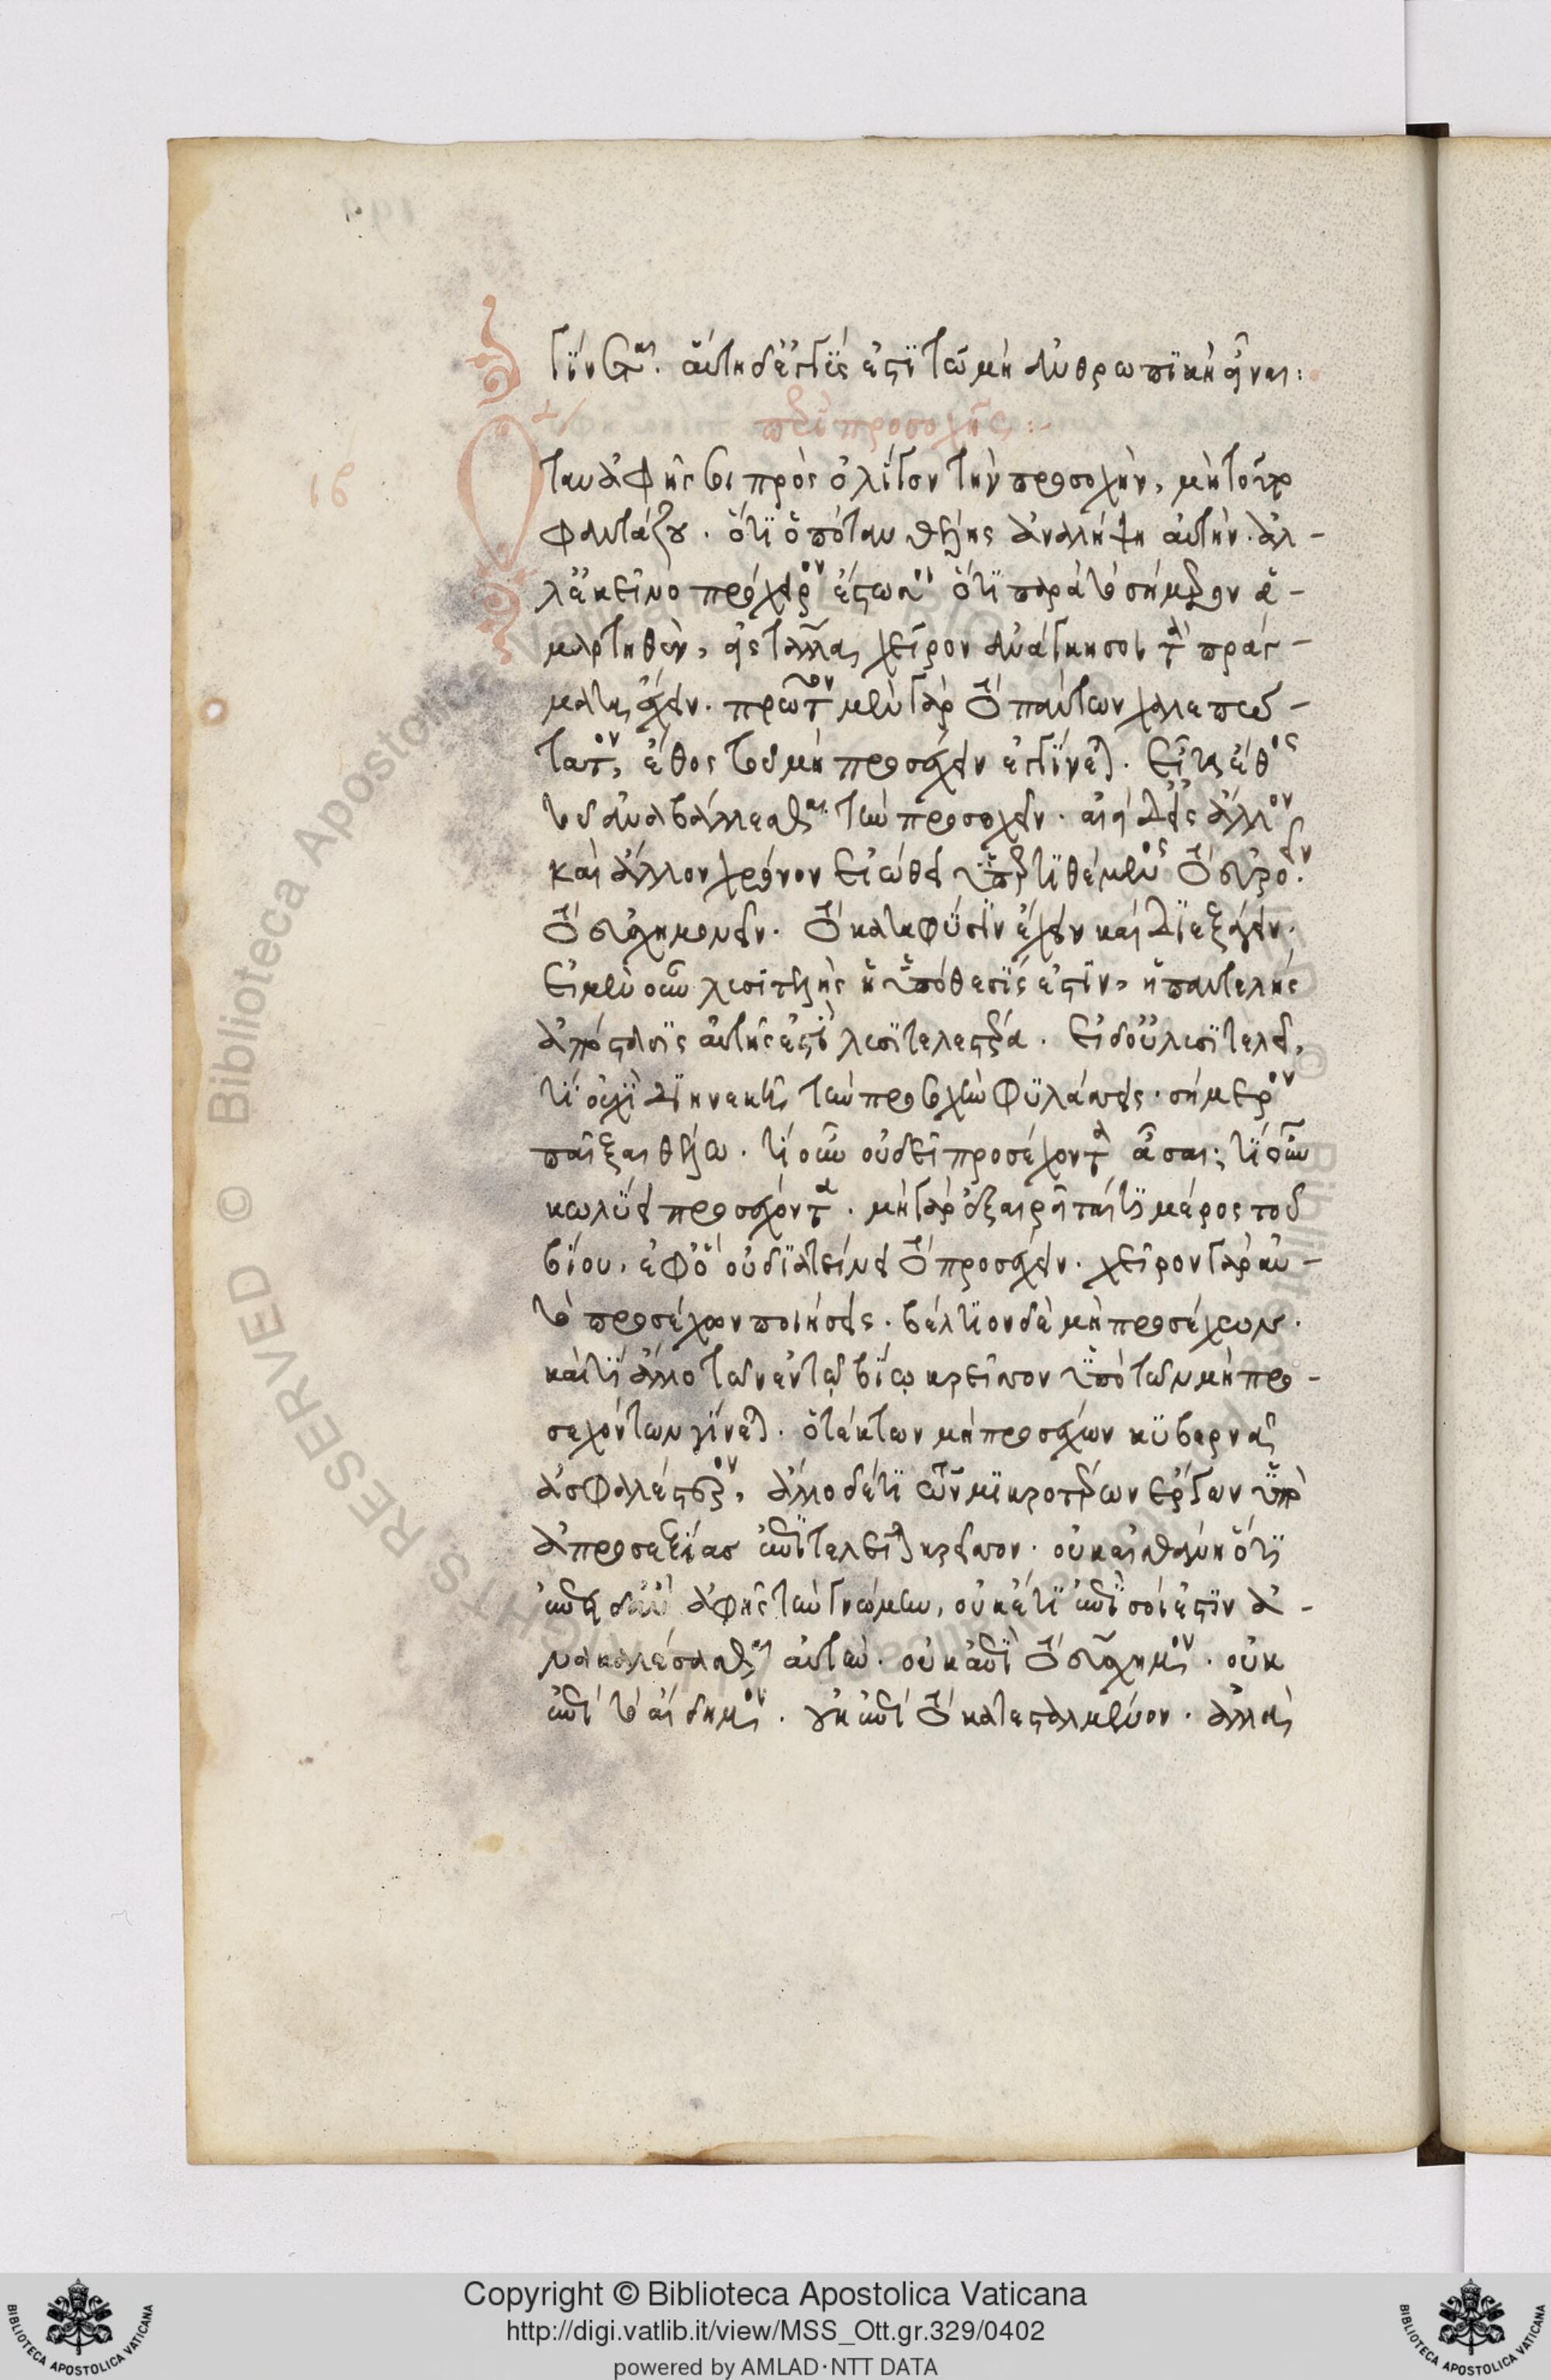 γίνεται. αὕτη δέ τις ἐστὶ τῶ μὴ ἀνθρωπικὴ εἶναι:
ιβ περὶ προσοχῆς:
Ὅταν ἀφῇς ἐπι πρὸς ὀλίγον τὴν προσοχὴν, μὴ τοῦτο
φαντάζου. ὅτι ὁπόταν θέλῃς ἀναλήψῃ αὐτήν. ἀλ-
λ' ἐκεῖνο πρόχειρον ἔστω σοι ὅτι παρὰ τὸ σήμερον ἁ-
μαρτηθὲν, εἰς τἄλλα χεῖρον ἀνάγκη σοι τὰ πράγ-
ματα ἔχειν. πρῶτον μὲν γὰρ τὸ πάντων χαλεπώ-
τατον, ἔθος τοῦ μὴ προσέχειν ἐγγίνεται. εἶτα ἔθος
τοῦ ἀναβάλλεσθαι τὴν προσοχήν. ἀεὶ δ' εἰς ἄλλον
καὶ ἄλλον χρόνον εἴωθε ὑπερτιθέμενος τὸ εὐροεῖν.
τὸ εὐσχημονεῖν. τὸ κατὰ φύσιν ἔχειν καὶ διεξάγειν.
εἰ μὲν οὖν λυσιτελὴς ἡ ὑπόθεσίς ἐστιν, ἡ παντελὴς
ἀπόστασις αὐτῆς ἐστὶ λυσιτελεστέρα. εἰ δ' οὐ λυσιτελεῖ,
τί οὐχὶ διηνεκῆ τὴν προσοχὴν φυλάσσεις. σήμερον
παῖξαι θέλω. τί οὖν οὐ δεῖ προσέχοντα ἆσαι; τί οὖν
κωλύει προσέχοντα. μὴ γὰρ ἐξαιρεῖταί τι μέρος τοῦ
βίου, ἐφ' ὃ οὐ διατείνει τὸ προσέχειν. χεῖρον γὰρ αὐ-
τὸ προσέχων ποιήσεις. βέλτιον δὲ μὴ προσέχων.
καὶ τί ἄλλο τῶν ἐν τῷ βίῳ κρεῖσσον ὑπὸ τῶν μὴ προ-
σεχόντων γίνεται. ὁ τέκτων μὴ προσέχων κυβερνᾷ
ἀσφαλέστερον, ἄλλο δέ τι τῶν μικροτέρων ἔργων ὑπὸ
ἀπροσεξίας ἐπιτελεῖται κρεῖσσον. οὐκ αἰσθάνῃ ὅτι
ἐπειδὰν ἀφῇς τὴν γνώμην, οὐκ ἔτι ἐπὶ σοί ἐστιν ἀ-
νακαλέσασθαι αὐτήν. οὐκ ἐπὶ τὸ εὔσχημον. οὐκ
ἐπὶ τὸ αἰδῆμον. οὐκ ἐπὶ τὸ κατεσταλμένον. ἀλλὰ
Copyright © Biblioteca Apostolica Vaticana
http://digi.vatlib.it/view/MSS_Ott.gr.329/0402
powered by AMLAD·NTT DATA